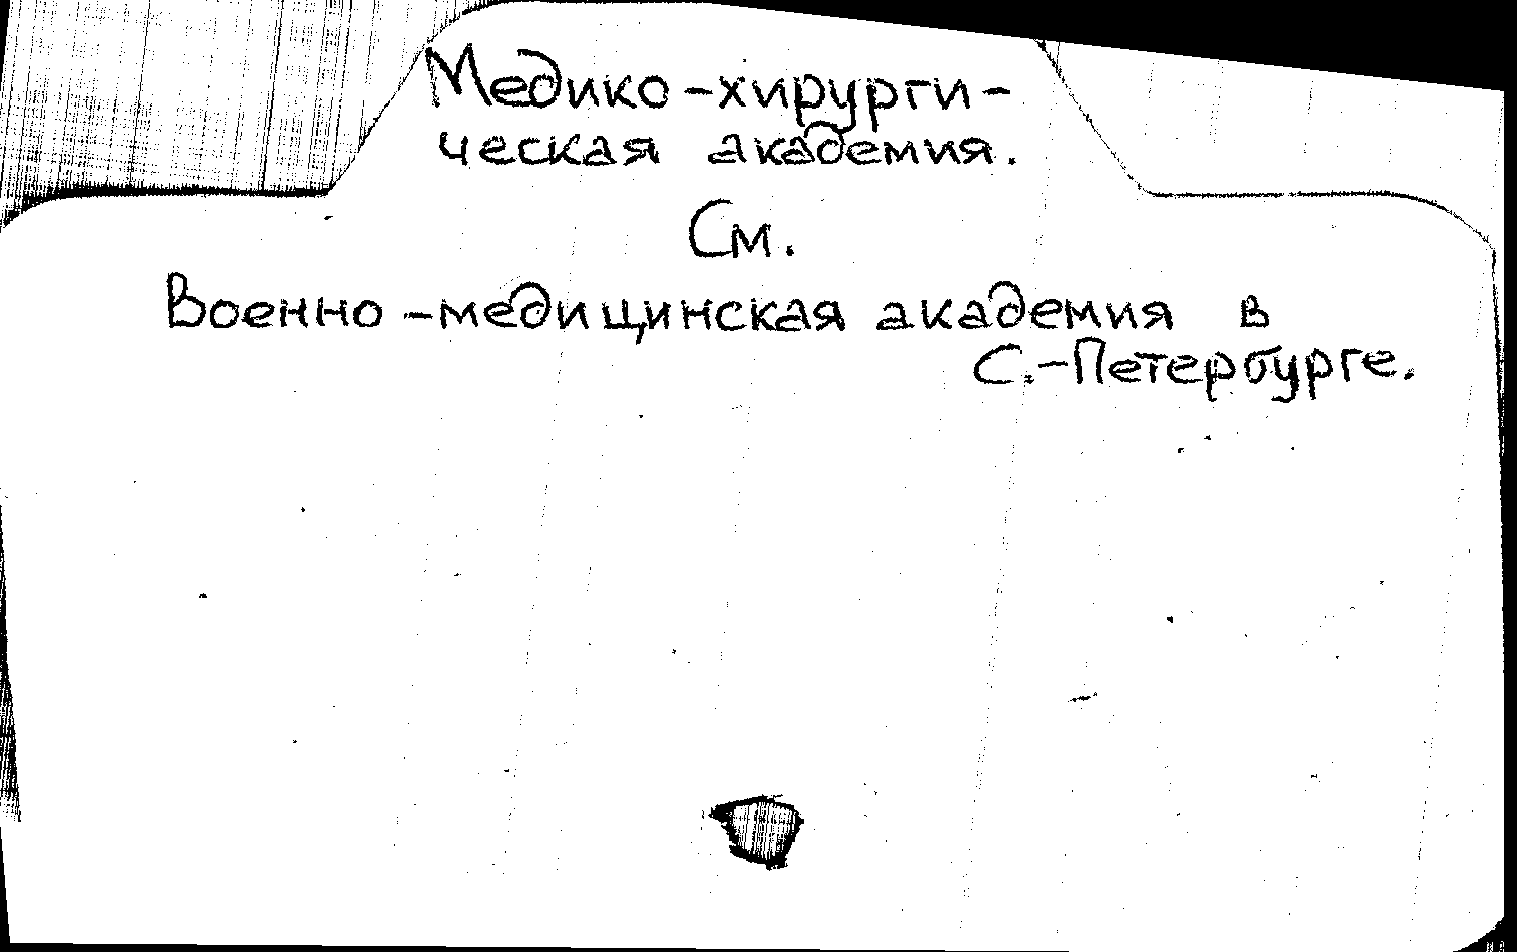 Медико-хирурги-
ческая академия.
См.
Военно-медицинская академия в
С.-Петербурге.